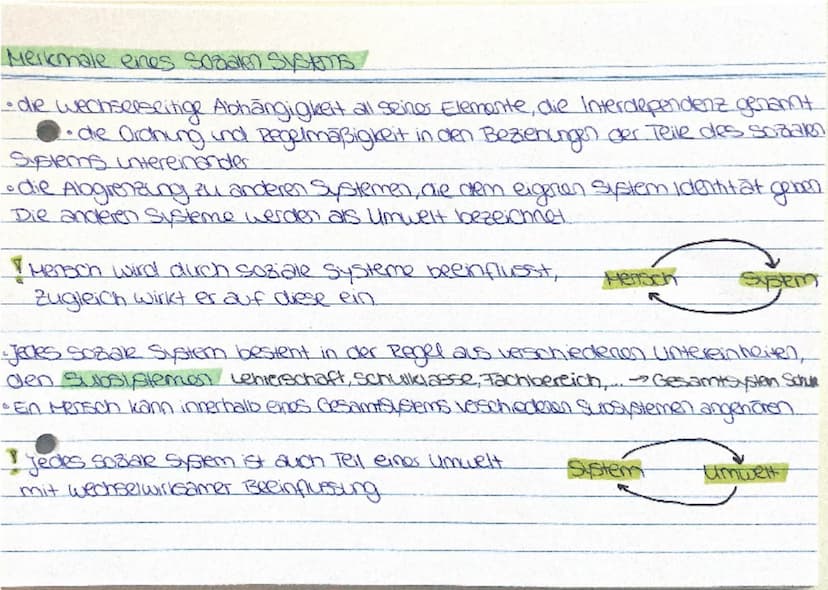 Merkmale eines sozialen Systems
• die wechselseitige Abhängigkeit all seiner Elemente, die Interdependenz genannt
• die Ordnung und Regelmäßigkeit in den Beziehungen der Teile des sozialen
Systems untereinander
• die Abgrenzung zu anderen Systemen, die dem eigenen System Identität geben
Die anderen Systeme werden als Umwelt bezeichnet
! Mensch wird durch soziale Systeme beeinflusst,
zugleich wirkt er auf diese ein
Mensch System
• Jedes soziale System besteht in der Regel aus verschiedenen Untereinheiten,
den Subsystemen Lehrerschaft, Schulklasse, Fachbereich,... → Gesamtsystem Schule
• Ein Mensch kann innerhalb eines Gesamtsystems verschiedenen Subsystemen angehören
! Jedes soziale System ist auch Teil einer Umwelt
mit wechselwirksamer Beeinflussung
System Umwelt